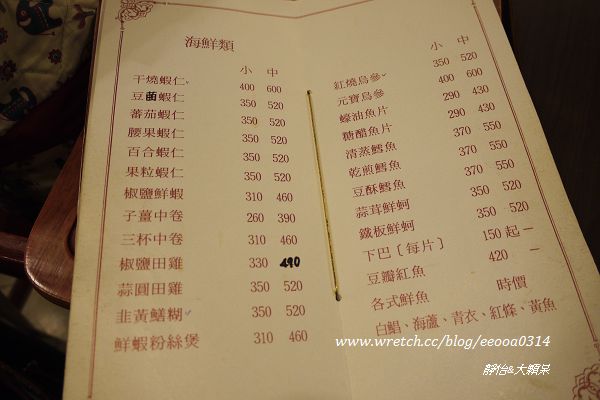 海鮮類
小 中
干燒蝦仁 400 600
豆苗蝦仁 350 520
蕃茄蝦仁 350 520
腰果蝦仁 350 520
百合蝦仁 350 520
果粒蝦仁 350 520
椒鹽鮮蝦 310 460
子薑中卷 260 390
三杯中卷 310 460
椒鹽田雞 330 490
蒜圓田雞 350 520
韭黃鱔糊 350 520
鮮蝦粉絲煲 310 460
小 中
紅燒烏參 350 520
元寶烏參 400 600
蠔油魚片 290 430
糖醋魚片 290 430
清蒸鱈魚 370 550
乾煎鱈魚 370 550
豆酥鱈魚 370 550
蒜茸鮮蚵 350 520
鐵板鮮蚵 350 520
下巴〔每片〕 150起 —
豆瓣紅魚 420 —
各式鮮魚 時價
白鯧、海鱸、青衣、紅條、黃魚
www.wretch.cc/blog/eeooa0314
靜怡&大顆呆